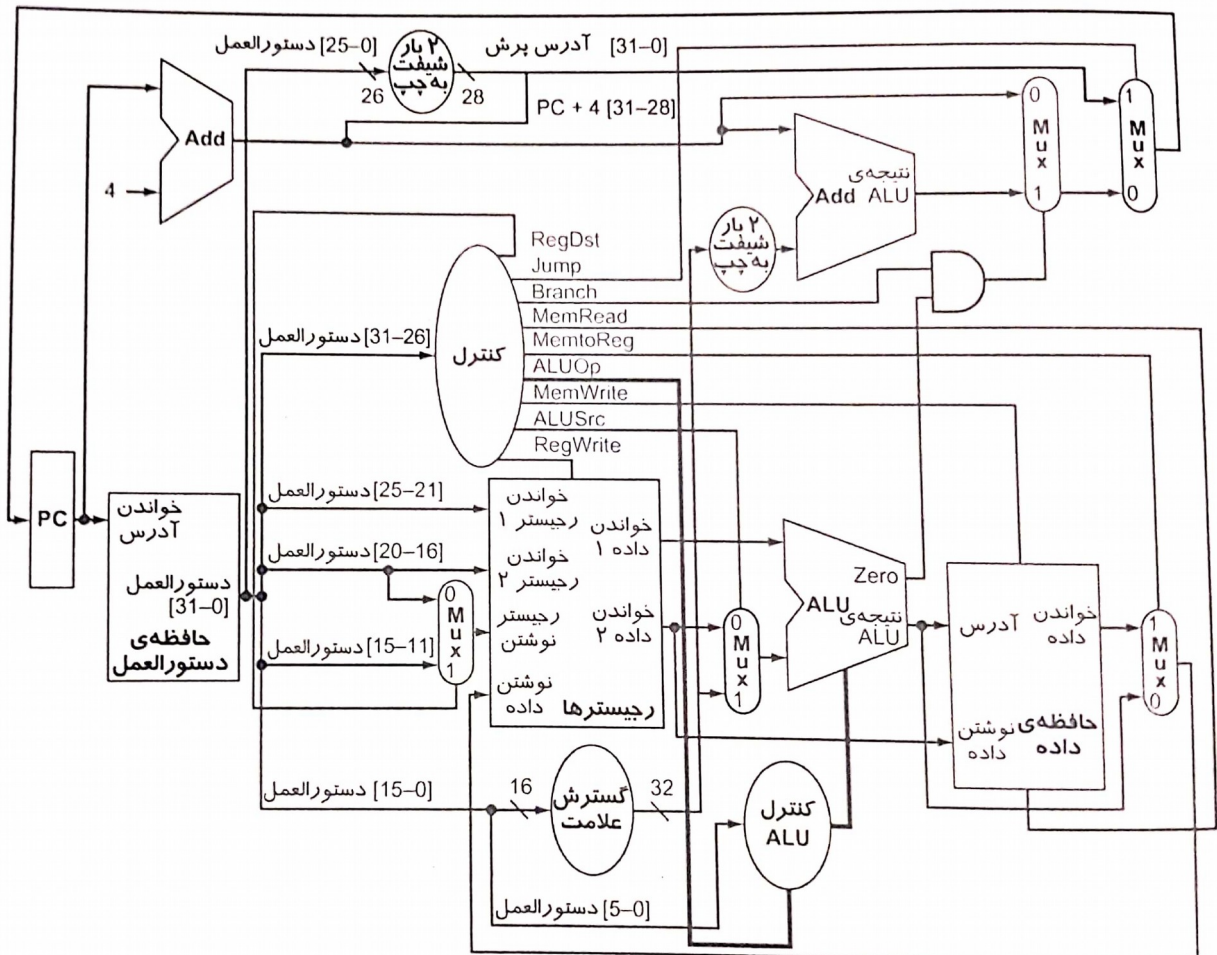 دستورالعمل [25–0]
۲ بار
شیفت
به چپ
26
28
آدرس پرش [31–0]
PC + 4 [31–28]
Add
4
0
M
u
x
1
1
M
u
x
0
نتیجه‌ی
Add ALU
۲ بار
شیفت
به چپ
RegDst
Jump
Branch
MemRead
MemtoReg
ALUOp
MemWrite
ALUSrc
RegWrite
کنترل
دستورالعمل [31–26]
PC
خواندن
آدرس
دستورالعمل
[31–0]
حافظه‌ی
دستورالعمل
دستورالعمل [25–21]
دستورالعمل [20–16]
دستورالعمل [15–11]
0
M
u
x
1
خواندن
رجیستر ۱
خواندن
رجیستر ۲
رجیستر
نوشتن
نوشتن
داده
خواندن
داده ۱
خواندن
داده ۲
رجیسترها
0
M
u
x
1
Zero
ALU
نتیجه‌ی
ALU
آدرس
خواندن
داده
نوشتن
داده
حافظه‌ی
داده
1
M
u
x
0
دستورالعمل [15–0]
16
گسترش
علامت
32
کنترل
ALU
دستورالعمل [5–0]